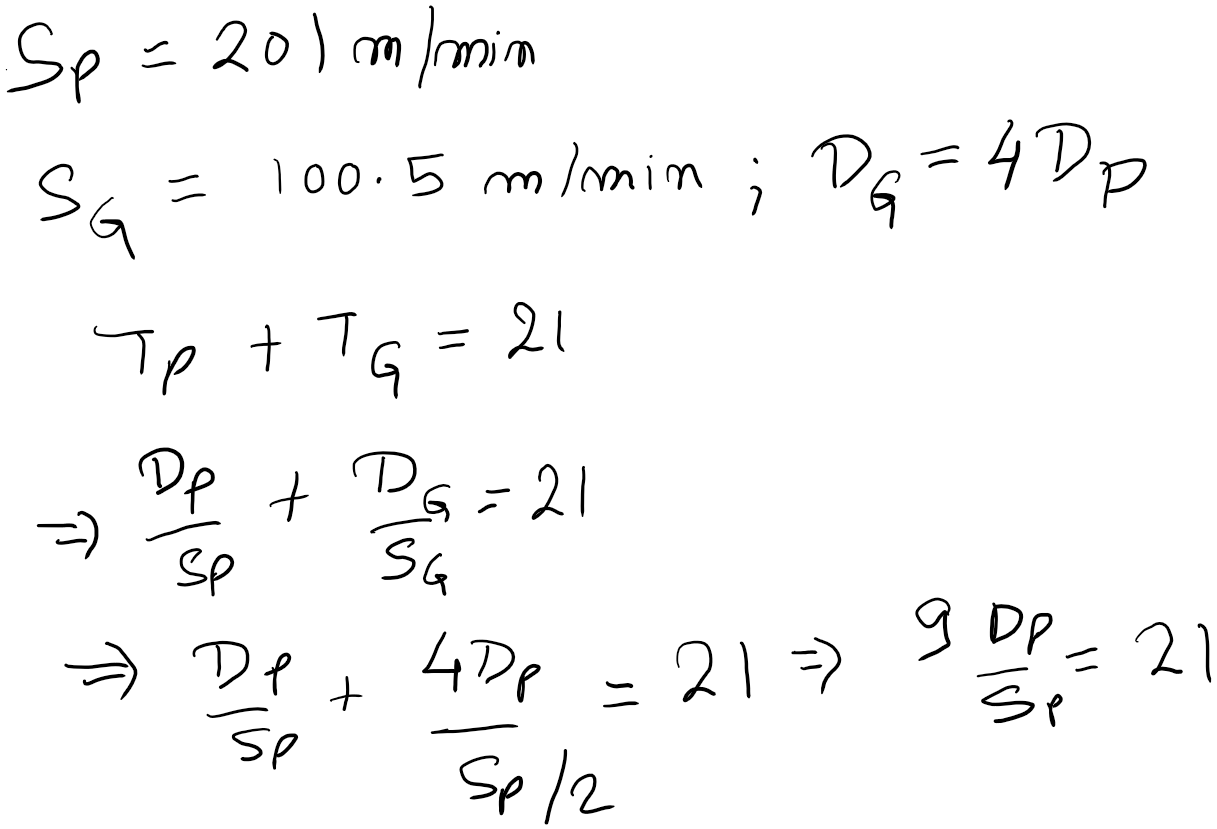 Sp = 201 m/min
S_G = 100.5 m/min ; D_G = 4D_P
T_P + T_G = 21
⇒ D_P/S_P + D_G/S_G = 21
⇒ D_P/S_P + 4D_P/(S_P/2) = 21 ⇒ 9 D_P/S_P = 21